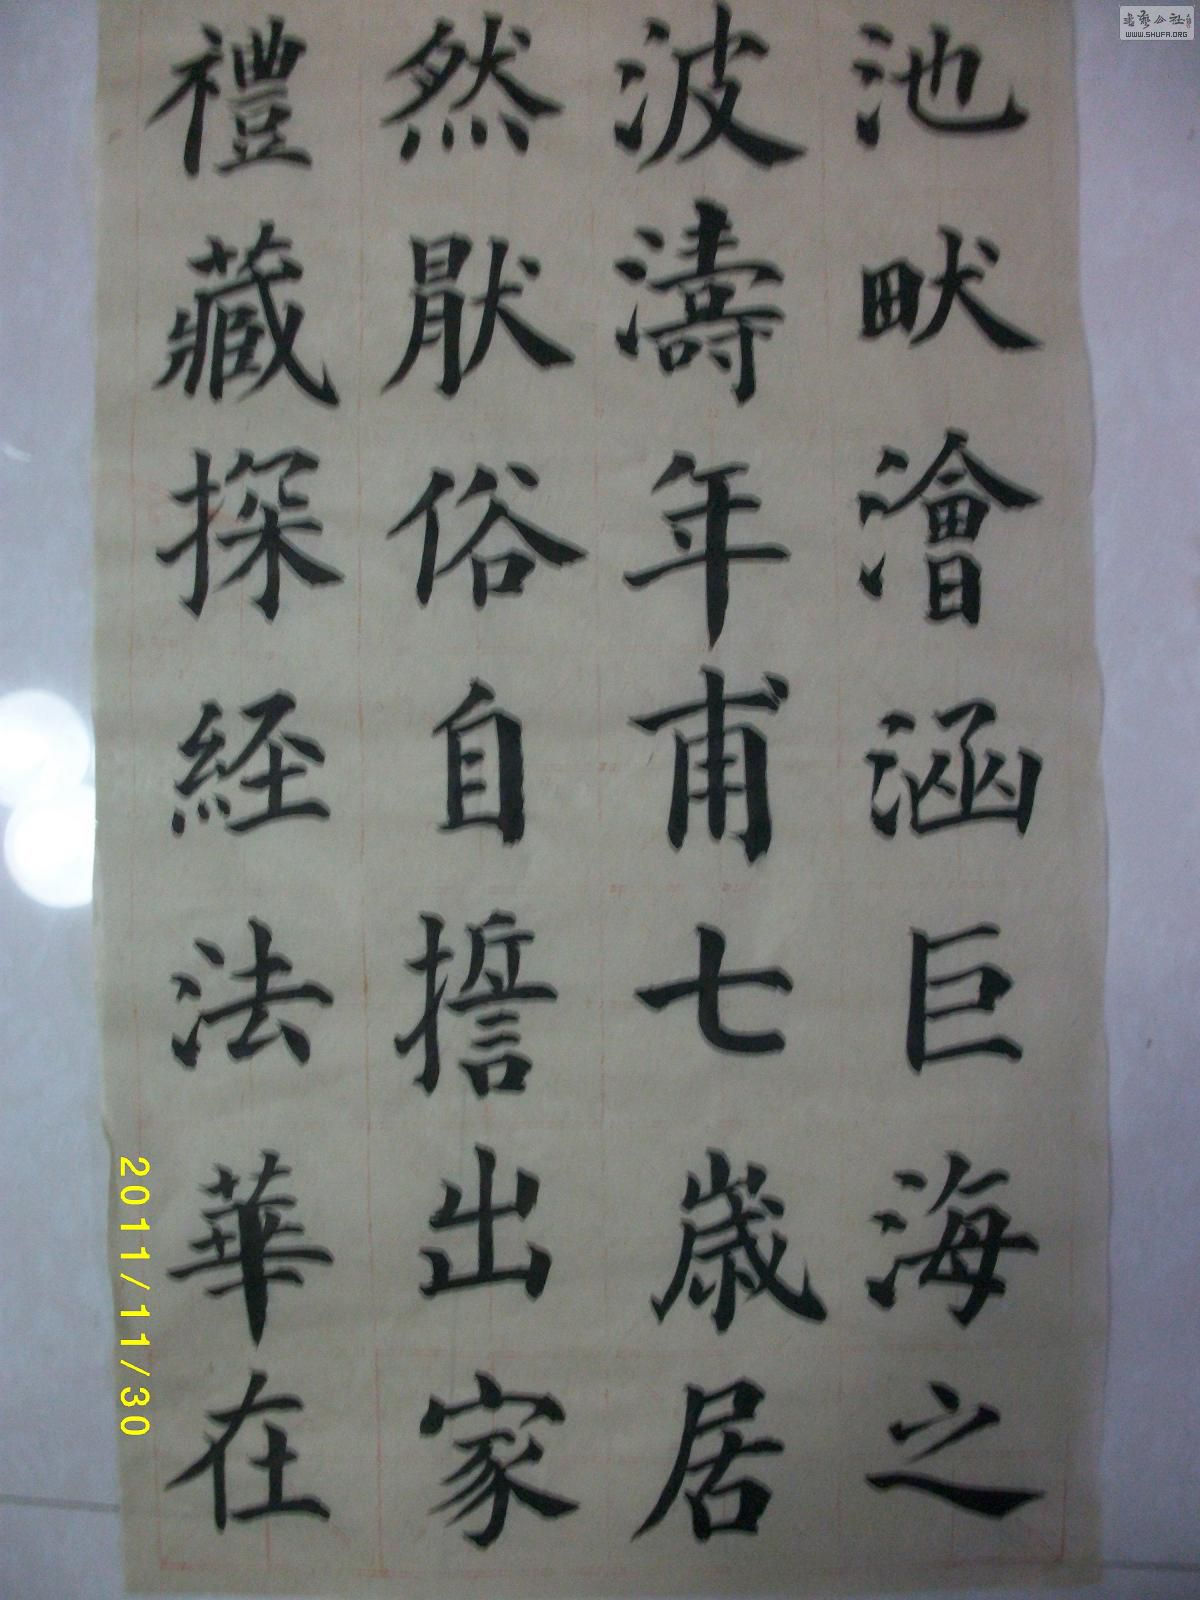 池畎澮涵巨海之
波濤年甫七歲居
然猒俗自擔出家
禮藏探經法華在
2011/11/30
书艺公社
WWW.SHUFA.ORG